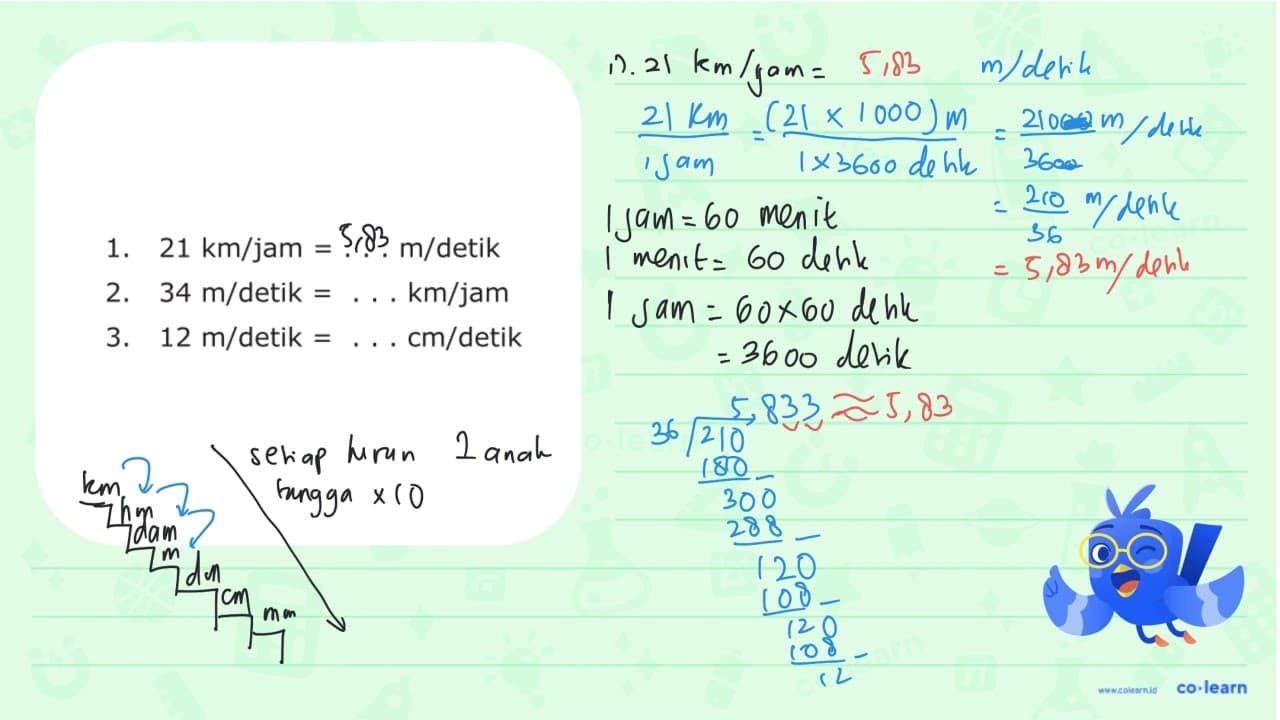 1. 21 km/jam = 5,83 m/detik
2. 34 m/detik = . . . km/jam
3. 12 m/detik = . . . cm/detik
setiap turun 1 anak
tangga x 10
km
hm
dam
m
dm
cm
mm
1). 21 km/jam = 5,83 m/detik
21 km / 1 jam = (21 x 1000) m / 1 x 3600 detik = 21000 / 3600 m/detik
= 210 / 36 m/detik
= 5,83 m/detik
1 jam = 60 menit
1 menit = 60 detik
1 jam = 60x60 detik
= 3600 detik
5,833 ≈ 5,83
36 / 210
180 -
300
288 -
120
108 -
120
108 -
12
www.colearn.id co·learn